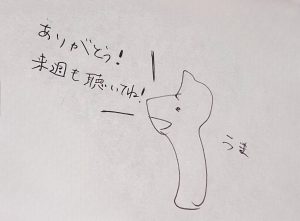 ありがとう!
来週も聴いてね!